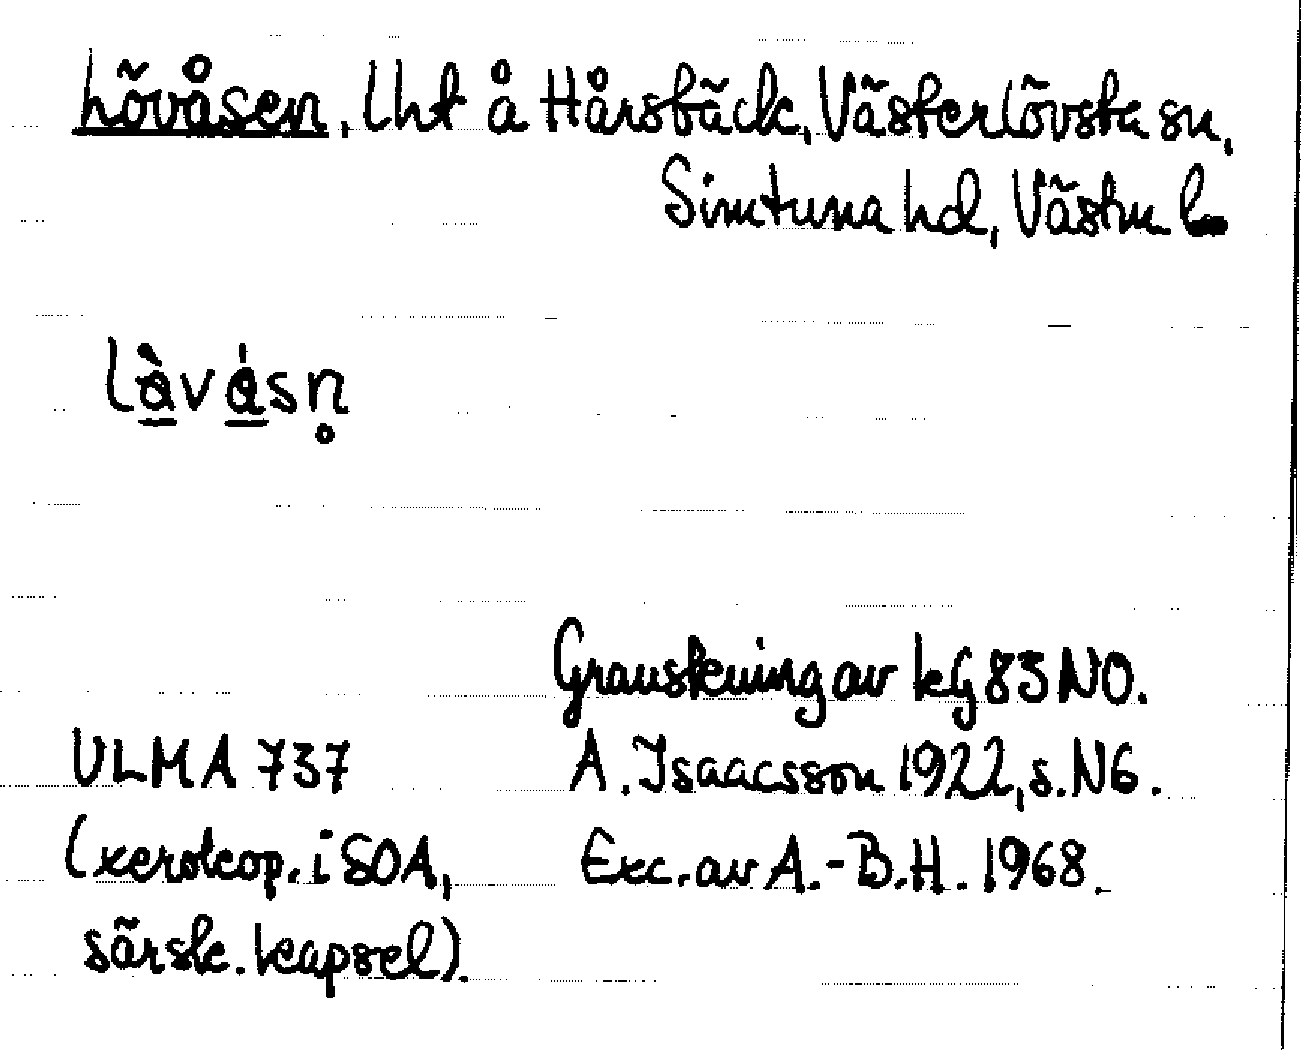 Lövåsen, lht å Hårsbäck, Västerlövsta sn,
Simtuna hd, Västm l
làvásn̥
Granskning av kG 83 NO.
ULMA 737 A. Isaacsson 1922, s. N6.
(xerokop. i SOA, Exc. av A.-B.H. 1968.
särsk. kapsel).